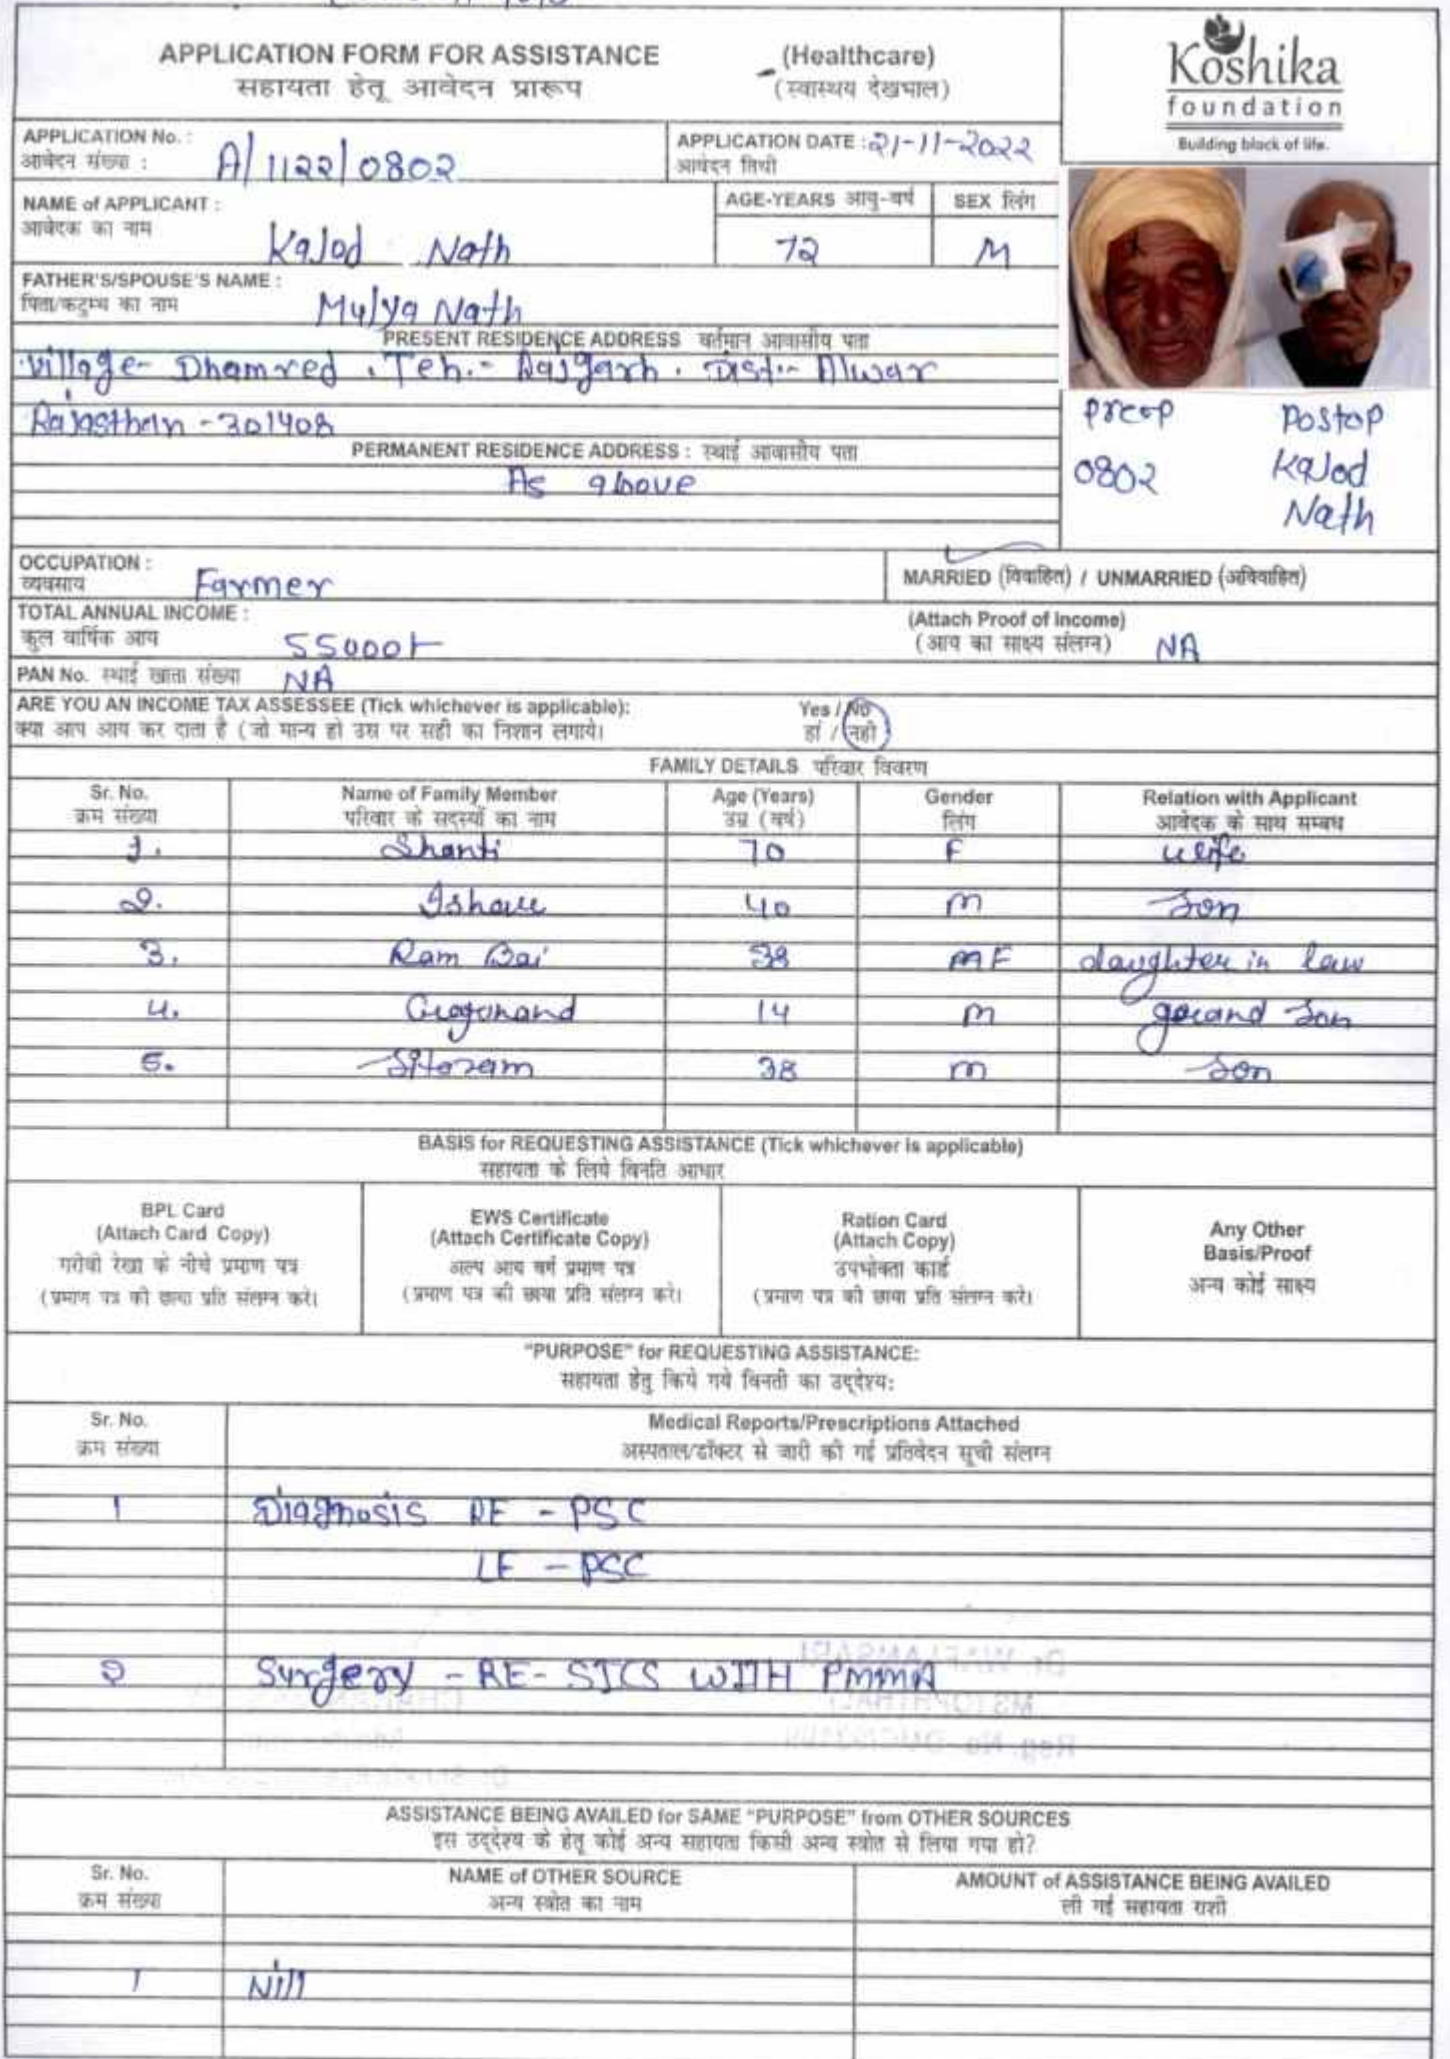 APPLICATION FORM FOR ASSISTANCE (Healthcare)
सहायता हेतू आवेदन प्रारूप (स्वास्थय देखभाल)
Koshika
foundation
Building block of life.
APPLICATION No. : A/1122/0802
आवेदन संख्या :
APPLICATION DATE : 21-11-2022
आवेदन तिथी
NAME of APPLICANT :
आवेदक का नाम
Kajod Nath
AGE-YEARS आयु-वर्ष
72
SEX लिंग
M
FATHER'S/SPOUSE'S NAME :
पिता/कटुम्ब का नाम
Mulya Nath
PRESENT RESIDENCE ADDRESS वर्तमान आवासीय पता
Village- Dhamred , Teh.- Rajgarh . Dist.- Alwar
Rajasthan - 301408
PERMANENT RESIDENCE ADDRESS : स्थाई आवासीय पता
As above
preop Postop
0802 Kajod
Nath
OCCUPATION :
व्यवसाय
Farmer
MARRIED (विवाहित) / UNMARRIED (अविवाहित)
TOTAL ANNUAL INCOME :
कुल वार्षिक आय
55000/-
(Attach Proof of Income)
(आय का साक्ष्य संलग्न) NA
PAN No. स्थाई खाता संख्या NA
ARE YOU AN INCOME TAX ASSESSEE (Tick whichever is applicable): Yes / No
क्या आप आय कर दाता है (जो मान्य हो उस पर सही का निशान लगाये। हां / नही
FAMILY DETAILS परिवार विवरण
Sr. No. Name of Family Member Age (Years) Gender Relation with Applicant
क्रम संख्या परिवार के सदस्यों का नाम उम्र (वर्ष) लिंग आवेदक के साथ सम्बध
1. Shanti 70 F wife
2. 40 m Son
3. Ram Bai 38 F daughter in law
4. 14 m grand son
5. Sitaram 38 m Son
BASIS for REQUESTING ASSISTANCE (Tick whichever is applicable)
सहायता के लिये विनति आधार
BPL Card
(Attach Card Copy)
गरीबी रेखा के नीचे प्रमाण पत्र
(प्रमाण पत्र की छाया प्रति संलग्न करे।
EWS Certificate
(Attach Certificate Copy)
अल्प आय वर्ग प्रमाण पत्र
(प्रमाण पत्र की छाया प्रति संलग्न करे।
Ration Card
(Attach Copy)
उपभोक्ता कार्ड
(प्रमाण पत्र की छाया प्रति संलग्न करे।
Any Other
Basis/Proof
अन्य कोई साक्ष्य
"PURPOSE" for REQUESTING ASSISTANCE:
सहायता हेतु किये गये विनती का उद्देश्य:
Sr. No. Medical Reports/Prescriptions Attached
क्रम संख्या अस्पताल/डॉक्टर से जारी की गई प्रतिवेदन सूची संलग्न
1 Diagnosis RE - PSC
LE - PSC
2 Surgery - RE- SICS WITH PMMA
ASSISTANCE BEING AVAILED for SAME "PURPOSE" from OTHER SOURCES
इस उद्देश्य के हेतू कोई अन्य सहायता किसी अन्य स्त्रोत से लिया गया हो?
Sr. No. NAME of OTHER SOURCE AMOUNT of ASSISTANCE BEING AVAILED
क्रम संख्या अन्य स्त्रोत का नाम ली गई सहायता राशी
1 Nill